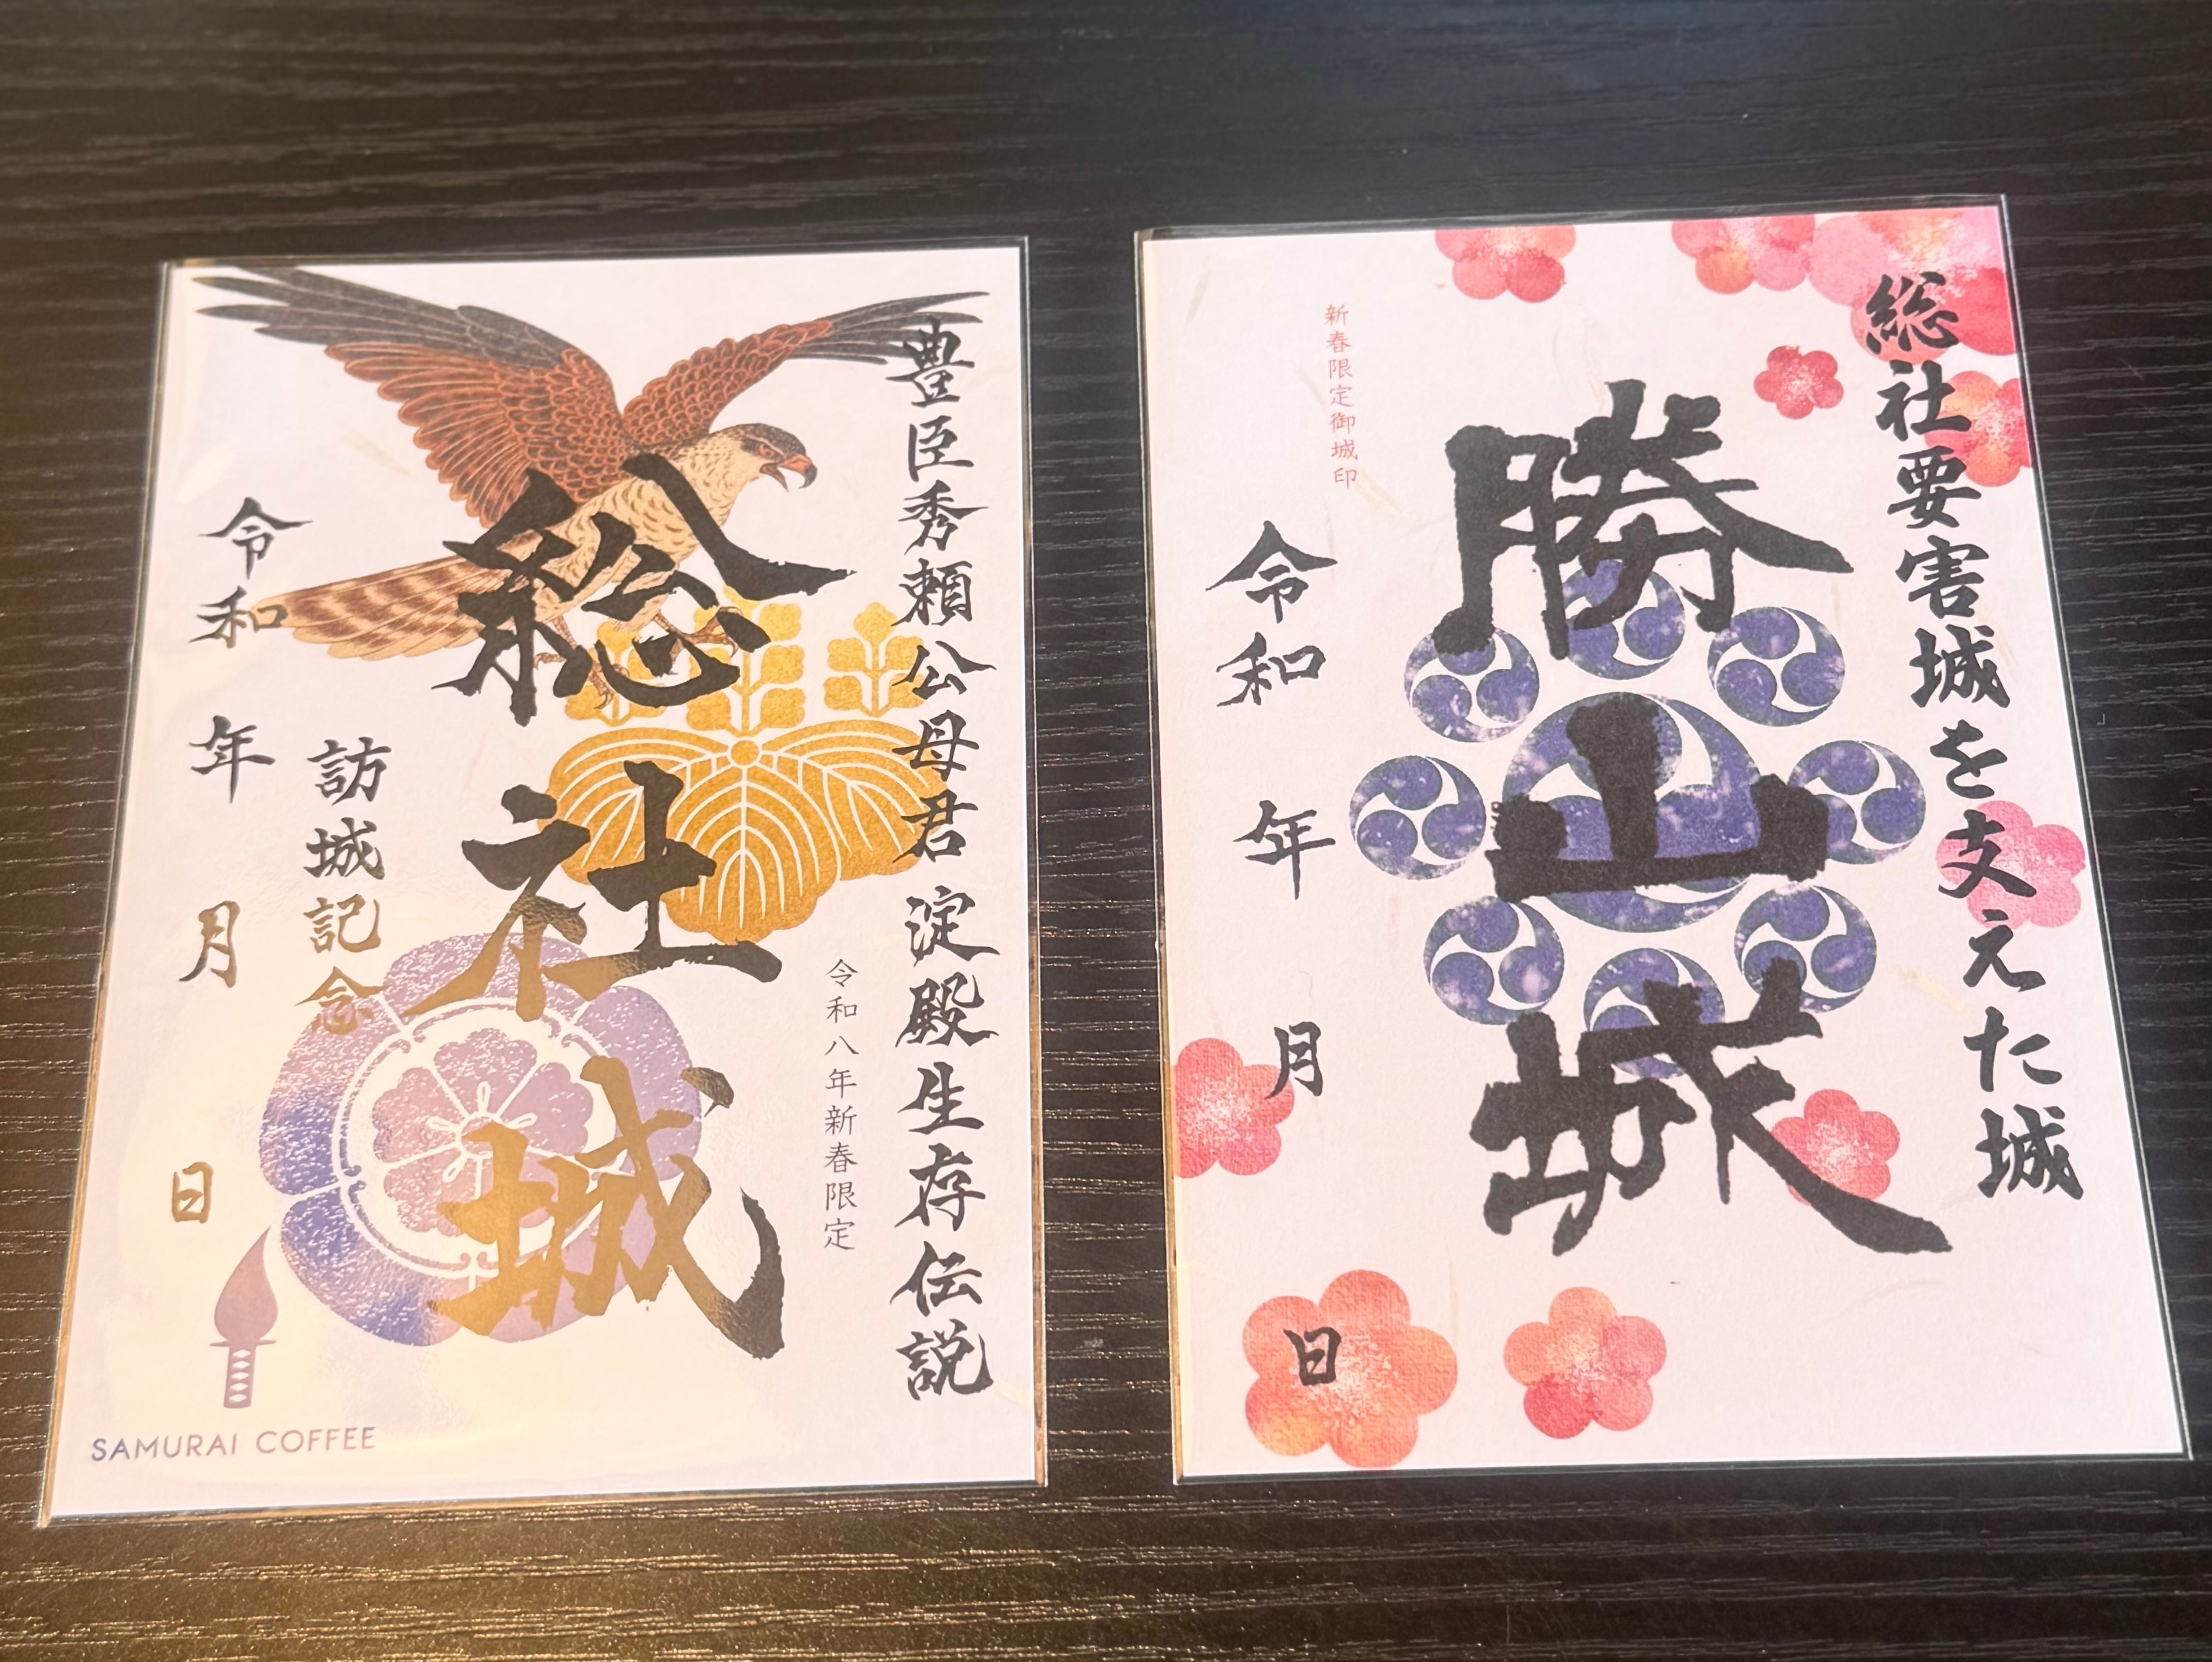 豊臣秀頼公母君 淀殿生存伝説
令和八年新春限定
総社城
訪城記念
令和 年 月 日
SAMURAI COFFEE
総社要害城を支えた城
勝山城
新春限定御城印
令和 年 月 日